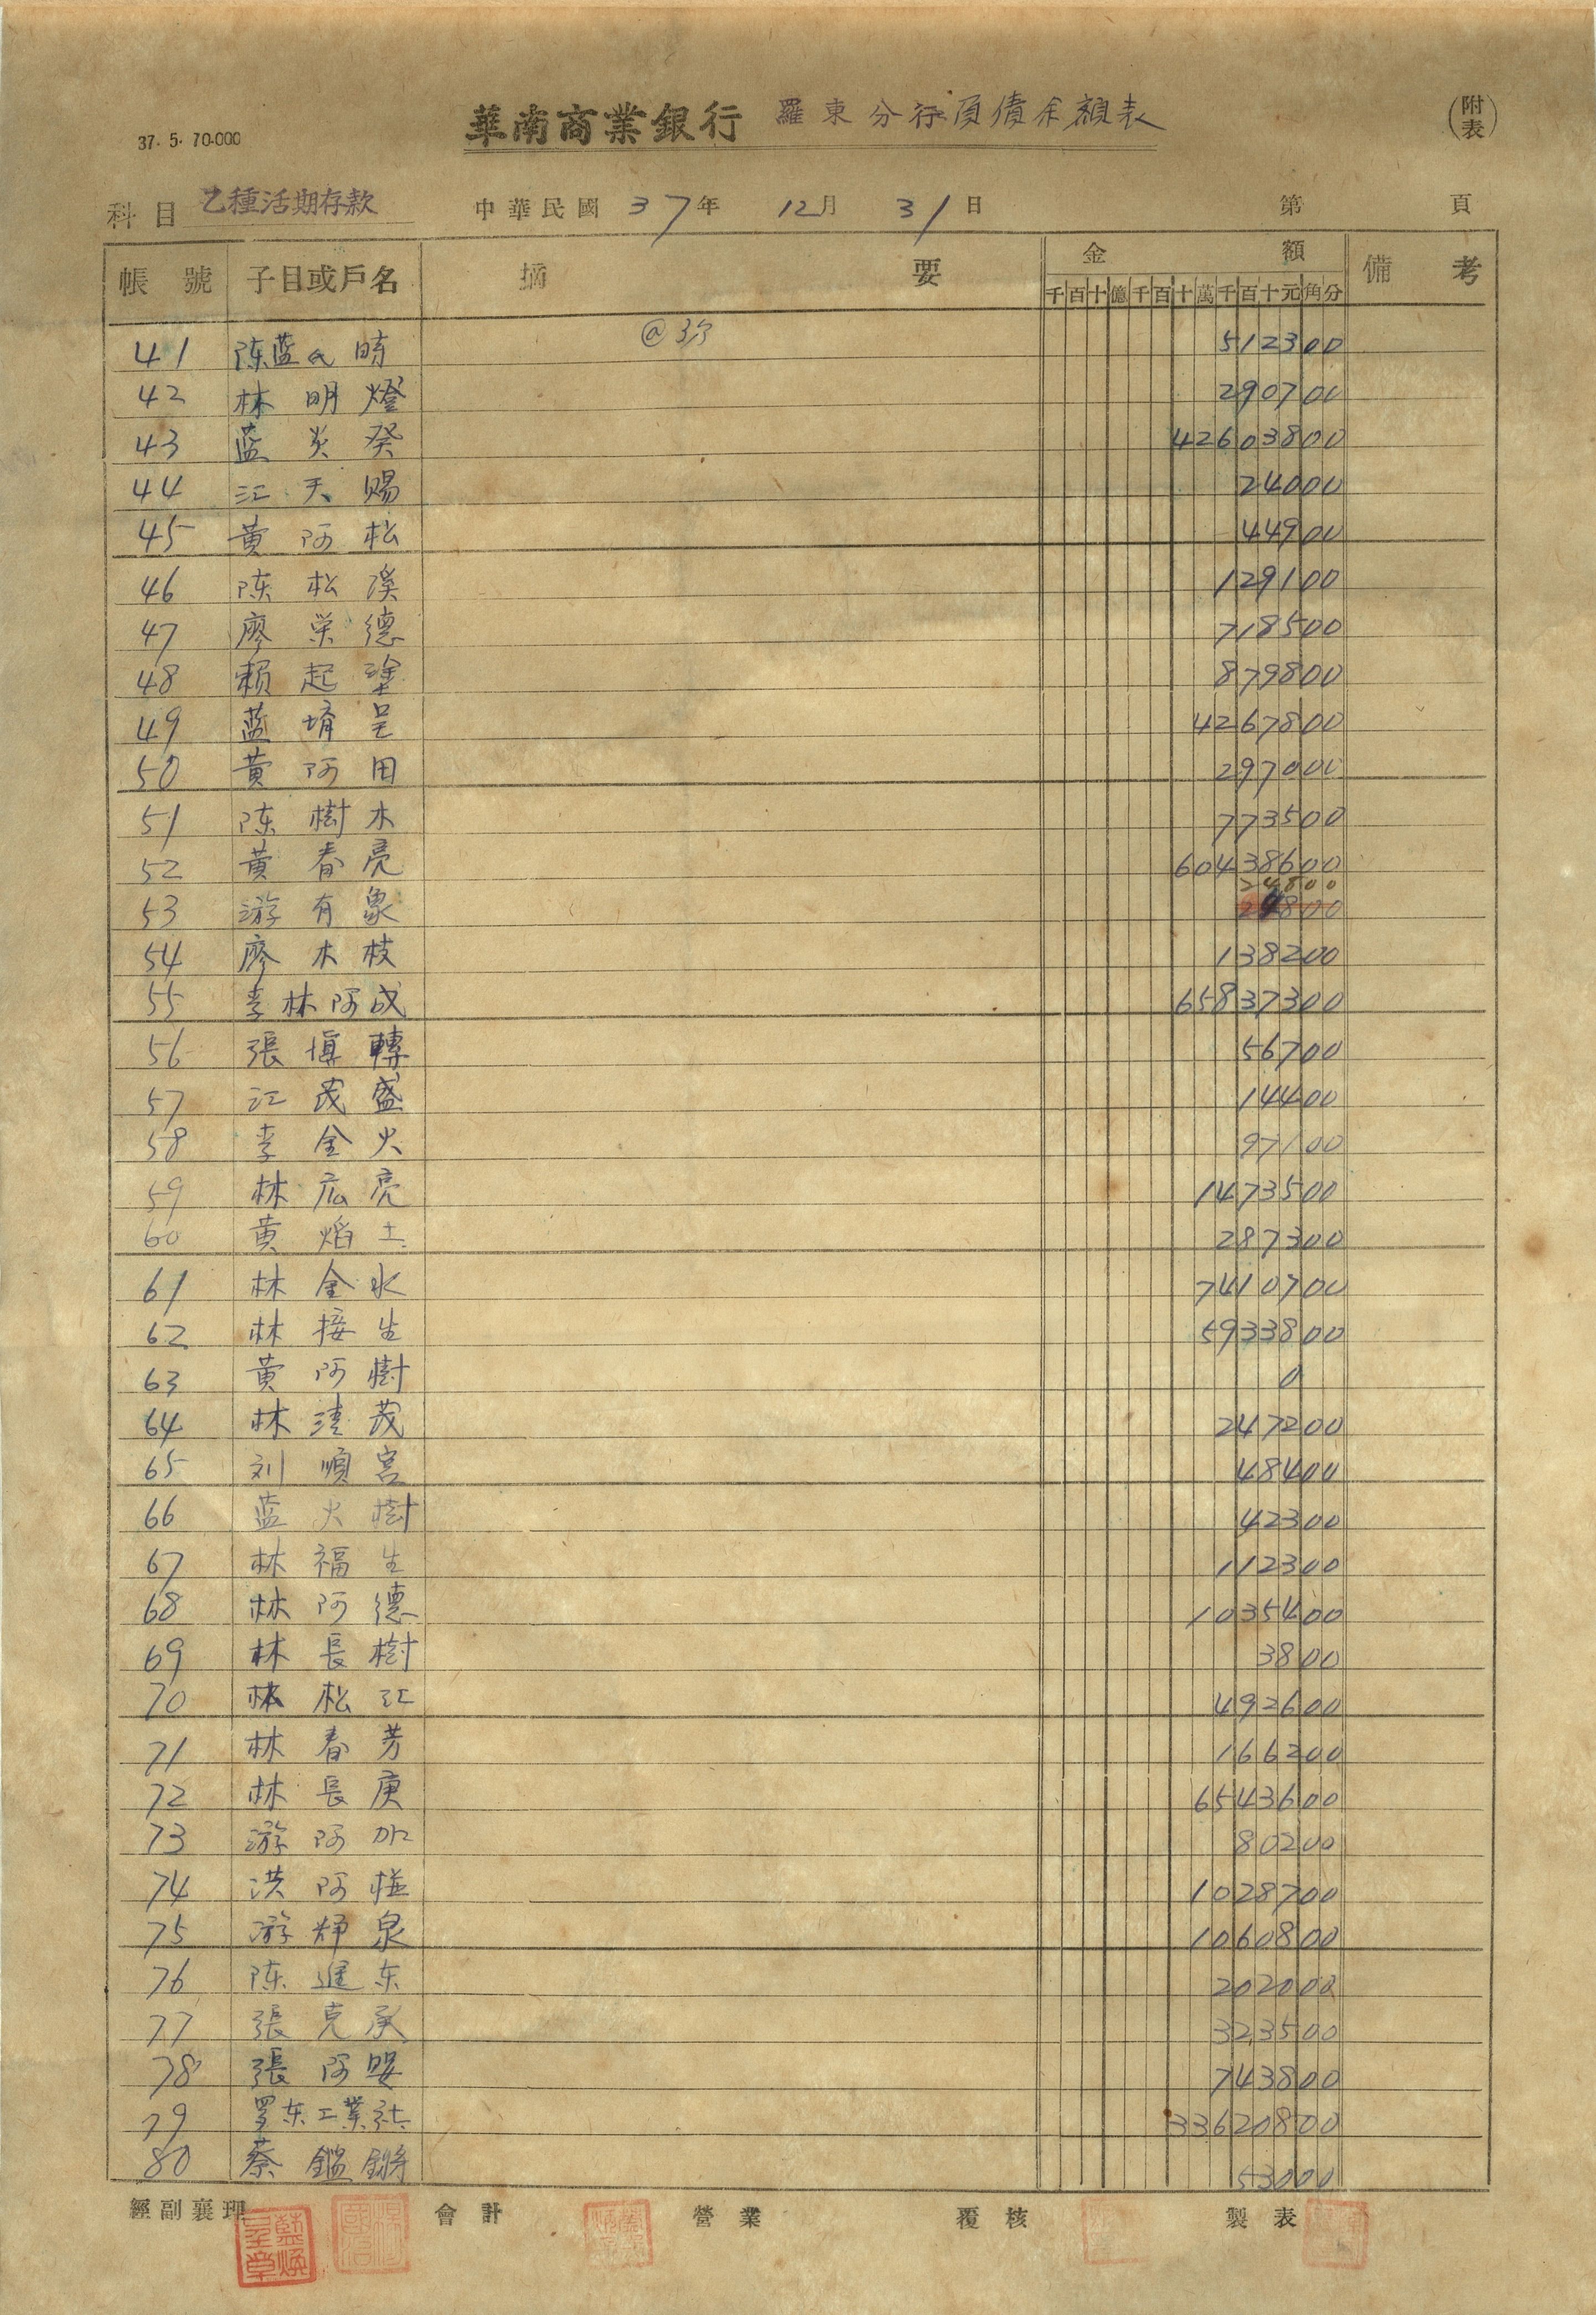 華南商業銀行 羅東分行負債余額表
(附表)
37. 5. 70.000
科目 乙種活期存款 中華民國 37年 12月 31日 第 頁
帳號 子目或戶名 摘要 金額 備考
千百十億千百十萬千百十元角分
41 陈蓝氏時 512300
42 林明燈 290700
43 蓝炎癸 42603800
44 江天賜 24000
45 黄阿松 44900
46 陈松溪 129100
47 廖栄德 718500
48 賴起塗 879800
49 蓝堉呈 4267800
50 黄阿田 297000
51 陈樹木 773500
52 黄春亮 60438600
24800
53 游有象
54 廖木枝 138200
55 李林阿成 65837300
56 張塡轉 56700
57 江茂盛 14400
58 李金火 97100
59 林広亮 1473500
60 黄焰土 287300
61 林金水 7410700
62 林接生 5933800
63 黄阿樹 0
64 林清茂 247200
65 刘順宮 48400
66 蓝火樹 42300
67 林福生 112300
68 林阿德 1035400
69 林長樹 3800
70 林松江 492600
71 林春芳 166200
72 林長庚 6543600
73 游阿加 80200
74 洪阿 1028700
75 游輝泉 1060800
76 陈進东 202000
77 張克承 323500
78 張阿 743800
79 罗东工業社 33620800
80 蔡鎰鏘 53000
經副襄理 會計 營業 覆核 製表